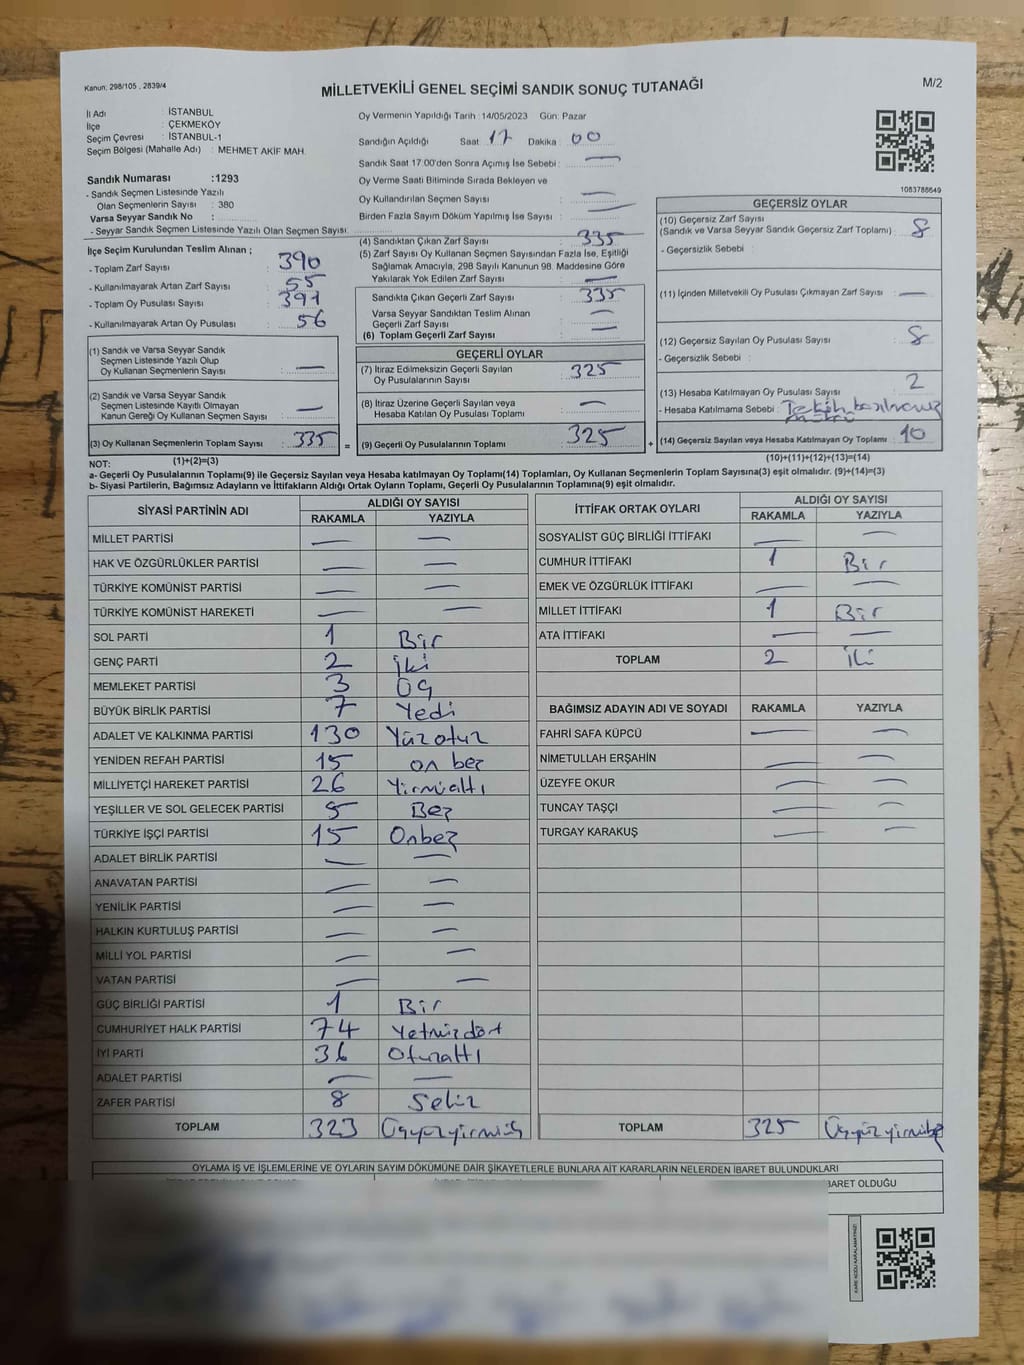 Kanun: 298/105 , 2839/4
MİLLETVEKİLİ GENEL SEÇİMİ SANDIK SONUÇ TUTANAĞI
M/2
İl Adı : İSTANBUL
İlçe : ÇEKMEKÖY
Seçim Çevresi : İSTANBUL-1
Seçim Bölgesi (Mahalle Adı) : MEHMET AKİF MAH.
Sandık Numarası :1293
- Sandık Seçmen Listesinde Yazılı
Olan Seçmenlerin Sayısı : 380
Varsa Seyyar Sandık No :
- Seyyar Sandık Seçmen Listesinde Yazılı Olan Seçmen Sayısı:
Oy Vermenin Yapıldığı Tarih :14/05/2023 Gün: Pazar
Sandığın Açıldığı Saat 17 Dakika : 00
Sandık Saat 17:00'den Sonra Açımış İse Sebebi : —
Oy Verme Saati Bitiminde Sırada Bekleyen ve
Oy Kullandırılan Seçmen Sayısı : —
Birden Fazla Sayım Döküm Yapılmış İse Sayısı : —
1083788649
İlçe Seçim Kurulundan Teslim Alınan ;
- Toplam Zarf Sayısı : 390
- Kullanılmayarak Artan Zarf Sayısı : 55
- Toplam Oy Pusulası Sayısı : 391
- Kullanılmayarak Artan Oy Pusulası : 56
(1) Sandık ve Varsa Seyyar Sandık
Seçmen Listesinde Yazılı Olup
Oy Kullanan Seçmenlerin Sayısı : —
(2) Sandık ve Varsa Seyyar Sandık
Seçmen Listesinde Kayıtlı Olmayan
Kanun Gereği Oy Kullanan Seçmen Sayısı : —
(3) Oy Kullanan Seçmenlerin Toplam Sayısı : 335 =
(1)+(2)=(3)
(4) Sandıktan Çıkan Zarf Sayısı : 335
(5) Zarf Sayısı Oy Kullanan Seçmen Sayısından Fazla İse, Eşitliği
Sağlamak Amacıyla, 298 Sayılı Kanunun 98. Maddesine Göre
Yakılarak Yok Edilen Zarf Sayısı : —
Sandıkta Çıkan Geçerli Zarf Sayısı : 335
Varsa Seyyar Sandıktan Teslim Alınan
Geçerli Zarf Sayısı : —
(6) Toplam Geçerli Zarf Sayısı : —
GEÇERLİ OYLAR
(7) İtiraz Edilmeksizin Geçerli Sayılan
Oy Pusulalarının Sayısı : 325
(8) İtiraz Üzerine Geçerli Sayılan veya
Hesaba Katılan Oy Pusulası Toplamı : —
(9) Geçerli Oy Pusulalarının Toplamı : 325 +
GEÇERSİZ OYLAR
(10) Geçersiz Zarf Sayısı
(Sandık ve Varsa Seyyar Sandık Geçersiz Zarf Toplamı) : 8
- Geçersizlik Sebebi :
(11) İçinden Milletvekili Oy Pusulası Çıkmayan Zarf Sayısı : —
(12) Geçersiz Sayılan Oy Pusulası Sayısı : 8
- Geçersizlik Sebebi :
(13) Hesaba Katılmayan Oy Pusulası Sayısı 2
- Hesaba Katılmama Sebebi :
(14) Geçersiz Sayılan veya Hesaba Katılmayan Oy Toplamı : 10
(10)+(11)+(12)+(13)=(14)
NOT:
a- Geçerli Oy Pusulalarının Toplamı(9) ile Geçersiz Sayılan veya Hesaba katılmayan Oy Toplamı(14) Toplamları, Oy Kullanan Seçmenlerin Toplam Sayısına(3) eşit olmalıdır. (9)+(14)=(3)
b- Siyasi Partilerin, Bağımsız Adayların ve İttifakların Aldığı Ortak Oyların Toplamı, Geçerli Oy Pusulalarının Toplamına(9) eşit olmalıdır.
SİYASİ PARTİNİN ADI ALDIĞI OY SAYISI
RAKAMLA YAZIYLA
MİLLET PARTİSİ — —
HAK VE ÖZGÜRLÜKLER PARTİSİ — —
TÜRKİYE KOMÜNİST PARTİSİ — —
TÜRKİYE KOMÜNİST HAREKETİ — —
SOL PARTİ 1 Bir
GENÇ PARTİ 2 İki
MEMLEKET PARTİSİ 3 Üç
BÜYÜK BİRLİK PARTİSİ 7 Yedi
ADALET VE KALKINMA PARTİSİ 130 Yüzotuz
YENİDEN REFAH PARTİSİ 15 on beş
MİLLİYETÇİ HAREKET PARTİSİ 26 Yirmialtı
YEŞİLLER VE SOL GELECEK PARTİSİ 5 Beş
TÜRKİYE İŞÇİ PARTİSİ 15 Onbeş
ADALET BİRLİK PARTİSİ — —
ANAVATAN PARTİSİ — —
YENİLİK PARTİSİ — —
HALKIN KURTULUŞ PARTİSİ — —
MİLLİ YOL PARTİSİ — —
VATAN PARTİSİ — —
GÜÇ BİRLİĞİ PARTİSİ 1 Bir
CUMHURİYET HALK PARTİSİ 74 Yetmişdört
İYİ PARTİ 36 Otuzaltı
ADALET PARTİSİ — —
ZAFER PARTİSİ 8 Sekiz
TOPLAM 323 Üçyüzyirmiüç
İTTİFAK ORTAK OYLARI ALDIĞI OY SAYISI
RAKAMLA YAZIYLA
SOSYALİST GÜÇ BİRLİĞİ İTTİFAKI — —
CUMHUR İTTİFAKI 1 Bir
EMEK VE ÖZGÜRLÜK İTTİFAKI — —
MİLLET İTTİFAKI 1 Bir
ATA İTTİFAKI — —
TOPLAM 2 İki
BAĞIMSIZ ADAYIN ADI VE SOYADI RAKAMLA YAZIYLA
FAHRİ SAFA KÜPCÜ — —
NİMETULLAH ERŞAHİN — —
ÜZEYFE OKUR — —
TUNCAY TAŞÇI — —
TURGAY KARAKUŞ — —
TOPLAM 325 Üçyüzyirmibeş
OYLAMA İŞ VE İŞLEMLERİNE VE OYLARIN SAYIM DÖKÜMÜNE DAİR ŞİKAYETLERLE BUNLARA AİT KARARLARIN NELERDEN İBARET BULUNDUKLARI
BARET OLDUĞU
KARE KODU KARALAMAYINIZ!